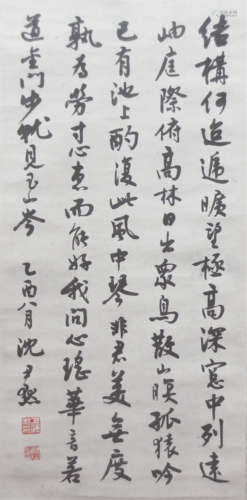 結構何迢遞曠望極高深窗中列遠
岫庭際俯高林日出衆鳥散山暝孤猿吟
已有池上酌復此風中琴非君美無度
孰為勞寸心惠而能好我問以瑤華音若
遺金門步就見玉山岑 乙酉八月 沈尹默